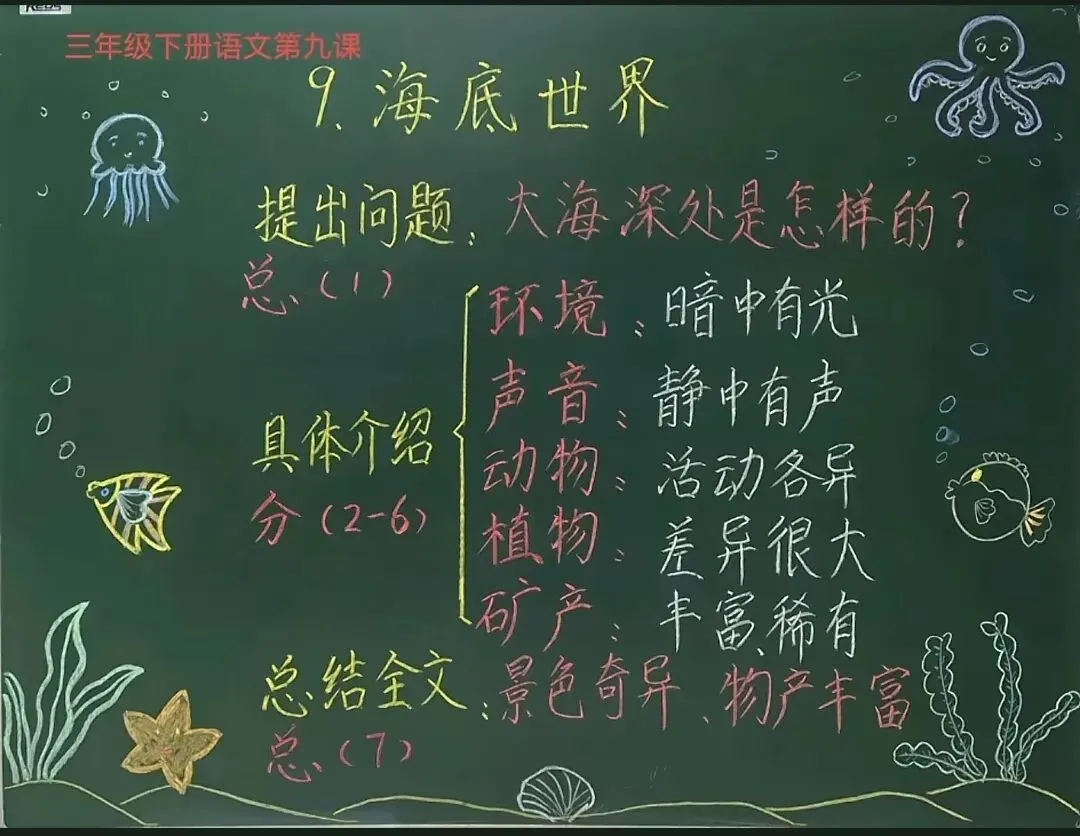 三年级下册语文第九课
9、海底世界
提出问题：大海深处是怎样的？
总（1）
环境：暗中有光
声音：静中有声
具体介绍
动物：活动各异
分（2-6）
植物：差异很大
矿产：丰富、稀有
总结全文：景色奇异、物产丰富
总（7）